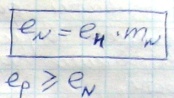 e_N = e_н · m_N
e_p ⩾ e_N